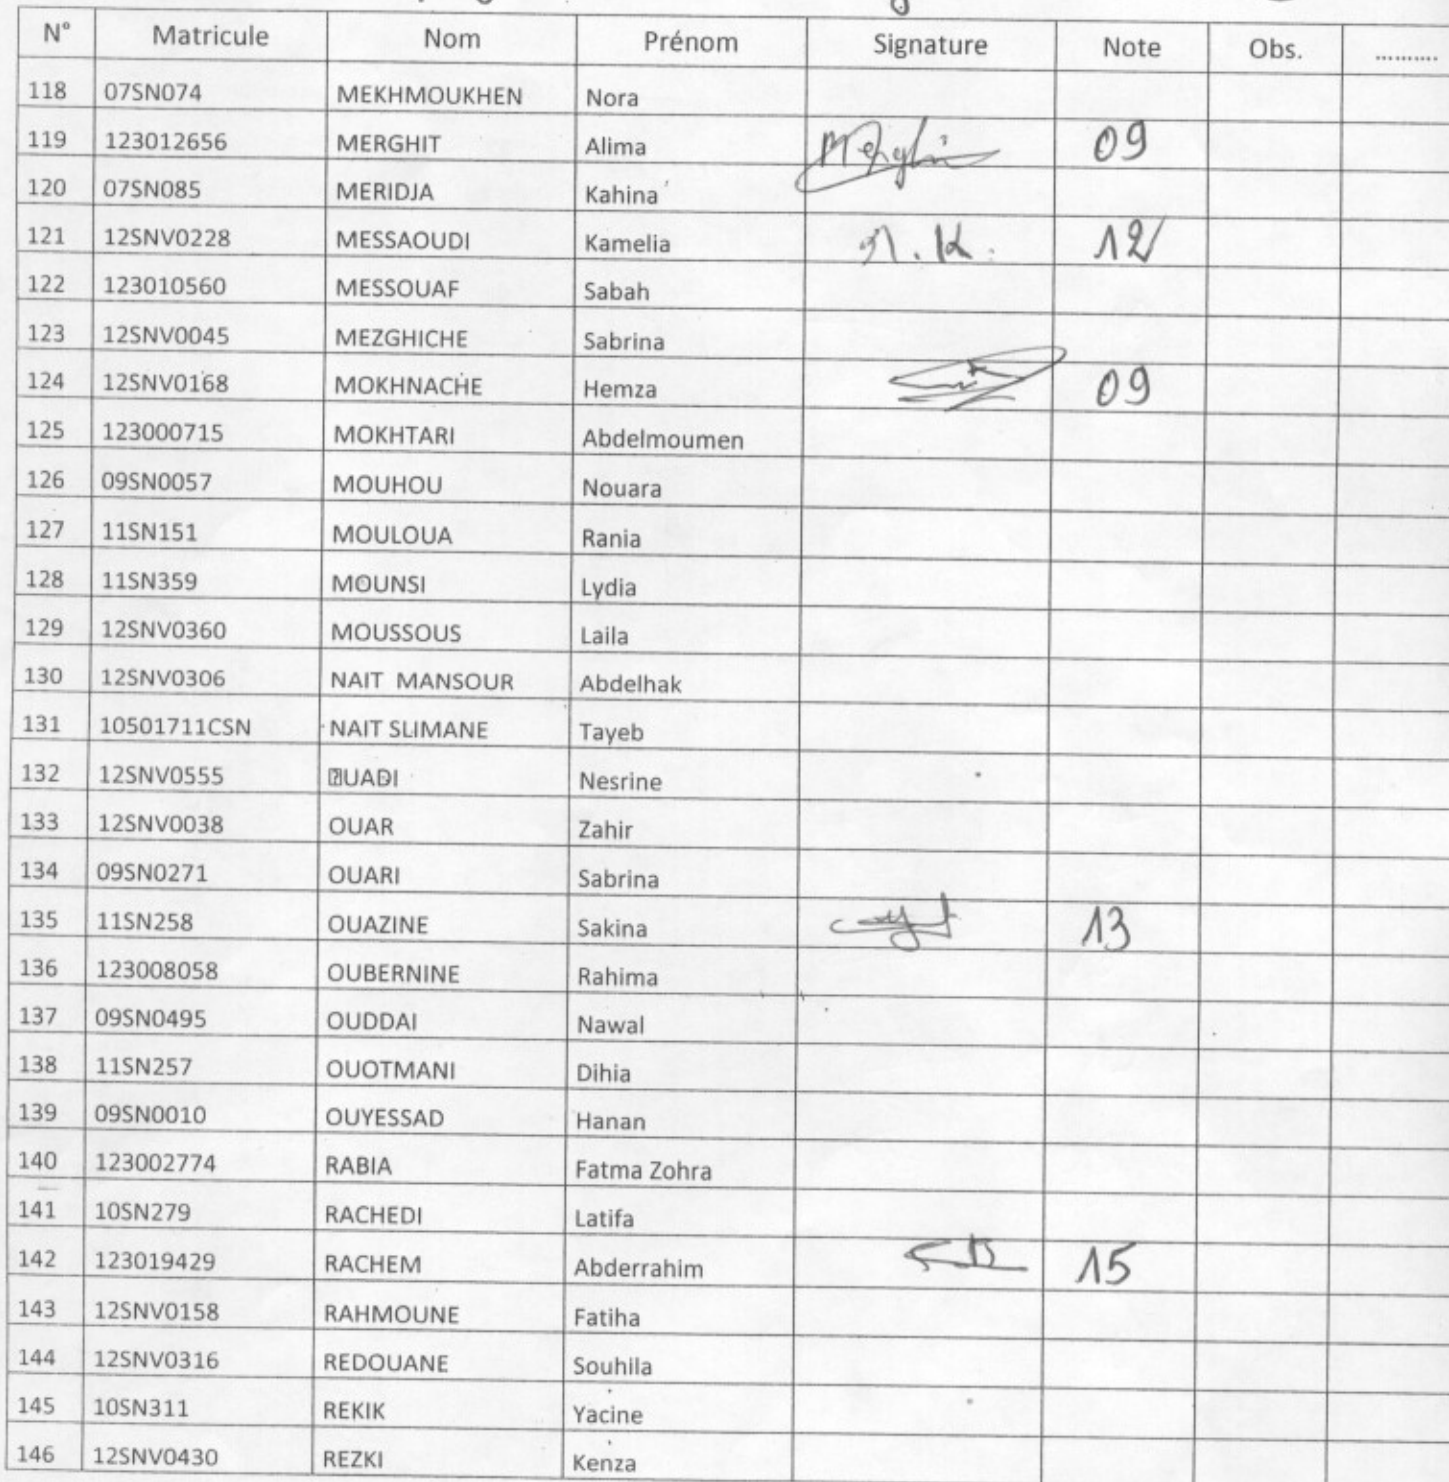 N° Matricule Nom Prénom Signature Note Obs. ..........
118 07SN074 MEKHMOUKHEN Nora
119 123012656 MERGHIT Alima 09
120 07SN085 MERIDJA Kahina
121 12SNV0228 MESSAOUDI Kamelia 12
122 123010560 MESSOUAF Sabah
123 12SNV0045 MEZGHICHE Sabrina
124 12SNV0168 MOKHNACHE Hemza 09
125 123000715 MOKHTARI Abdelmoumen
126 09SN0057 MOUHOU Nouara
127 11SN151 MOULOUA Rania
128 11SN359 MOUNSI Lydia
129 12SNV0360 MOUSSOUS Laila
130 12SNV0306 NAIT MANSOUR Abdelhak
131 10501711CSN NAIT SLIMANE Tayeb
132 12SNV0555 �UADI Nesrine
133 12SNV0038 OUAR Zahir
134 09SN0271 OUARI Sabrina
135 11SN258 OUAZINE Sakina 13
136 123008058 OUBERNINE Rahima
137 09SN0495 OUDDAI Nawal
138 11SN257 OUOTMANI Dihia
139 09SN0010 OUYESSAD Hanan
140 123002774 RABIA Fatma Zohra
141 10SN279 RACHEDI Latifa
142 123019429 RACHEM Abderrahim 15
143 12SNV0158 RAHMOUNE Fatiha
144 12SNV0316 REDOUANE Souhila
145 10SN311 REKIK Yacine
146 12SNV0430 REZKI Kenza